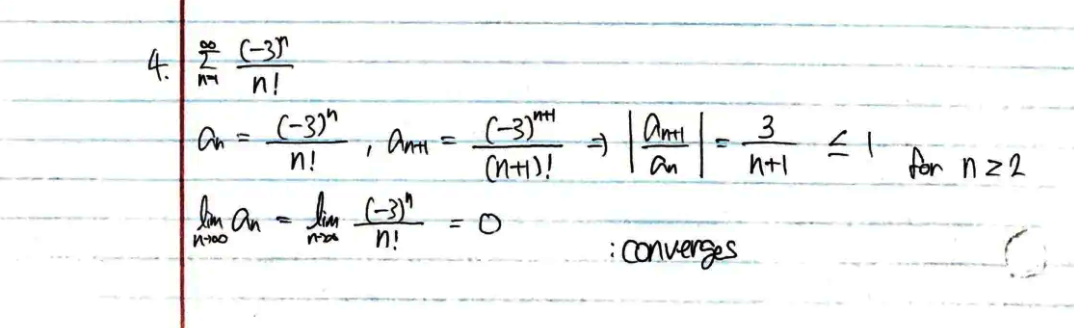 4. ∞ Σ n=1 (-3)^n / n!
a_n = (-3)^n / n! , a_{n+1} = (-3)^{n+1} / (n+1)! ⇒ |a_{n+1} / a_n| = 3 / n+1 ≤ 1 for n ≥ 2
lim n→∞ a_n = lim n→∞ (-3)^n / n! = 0
: converges